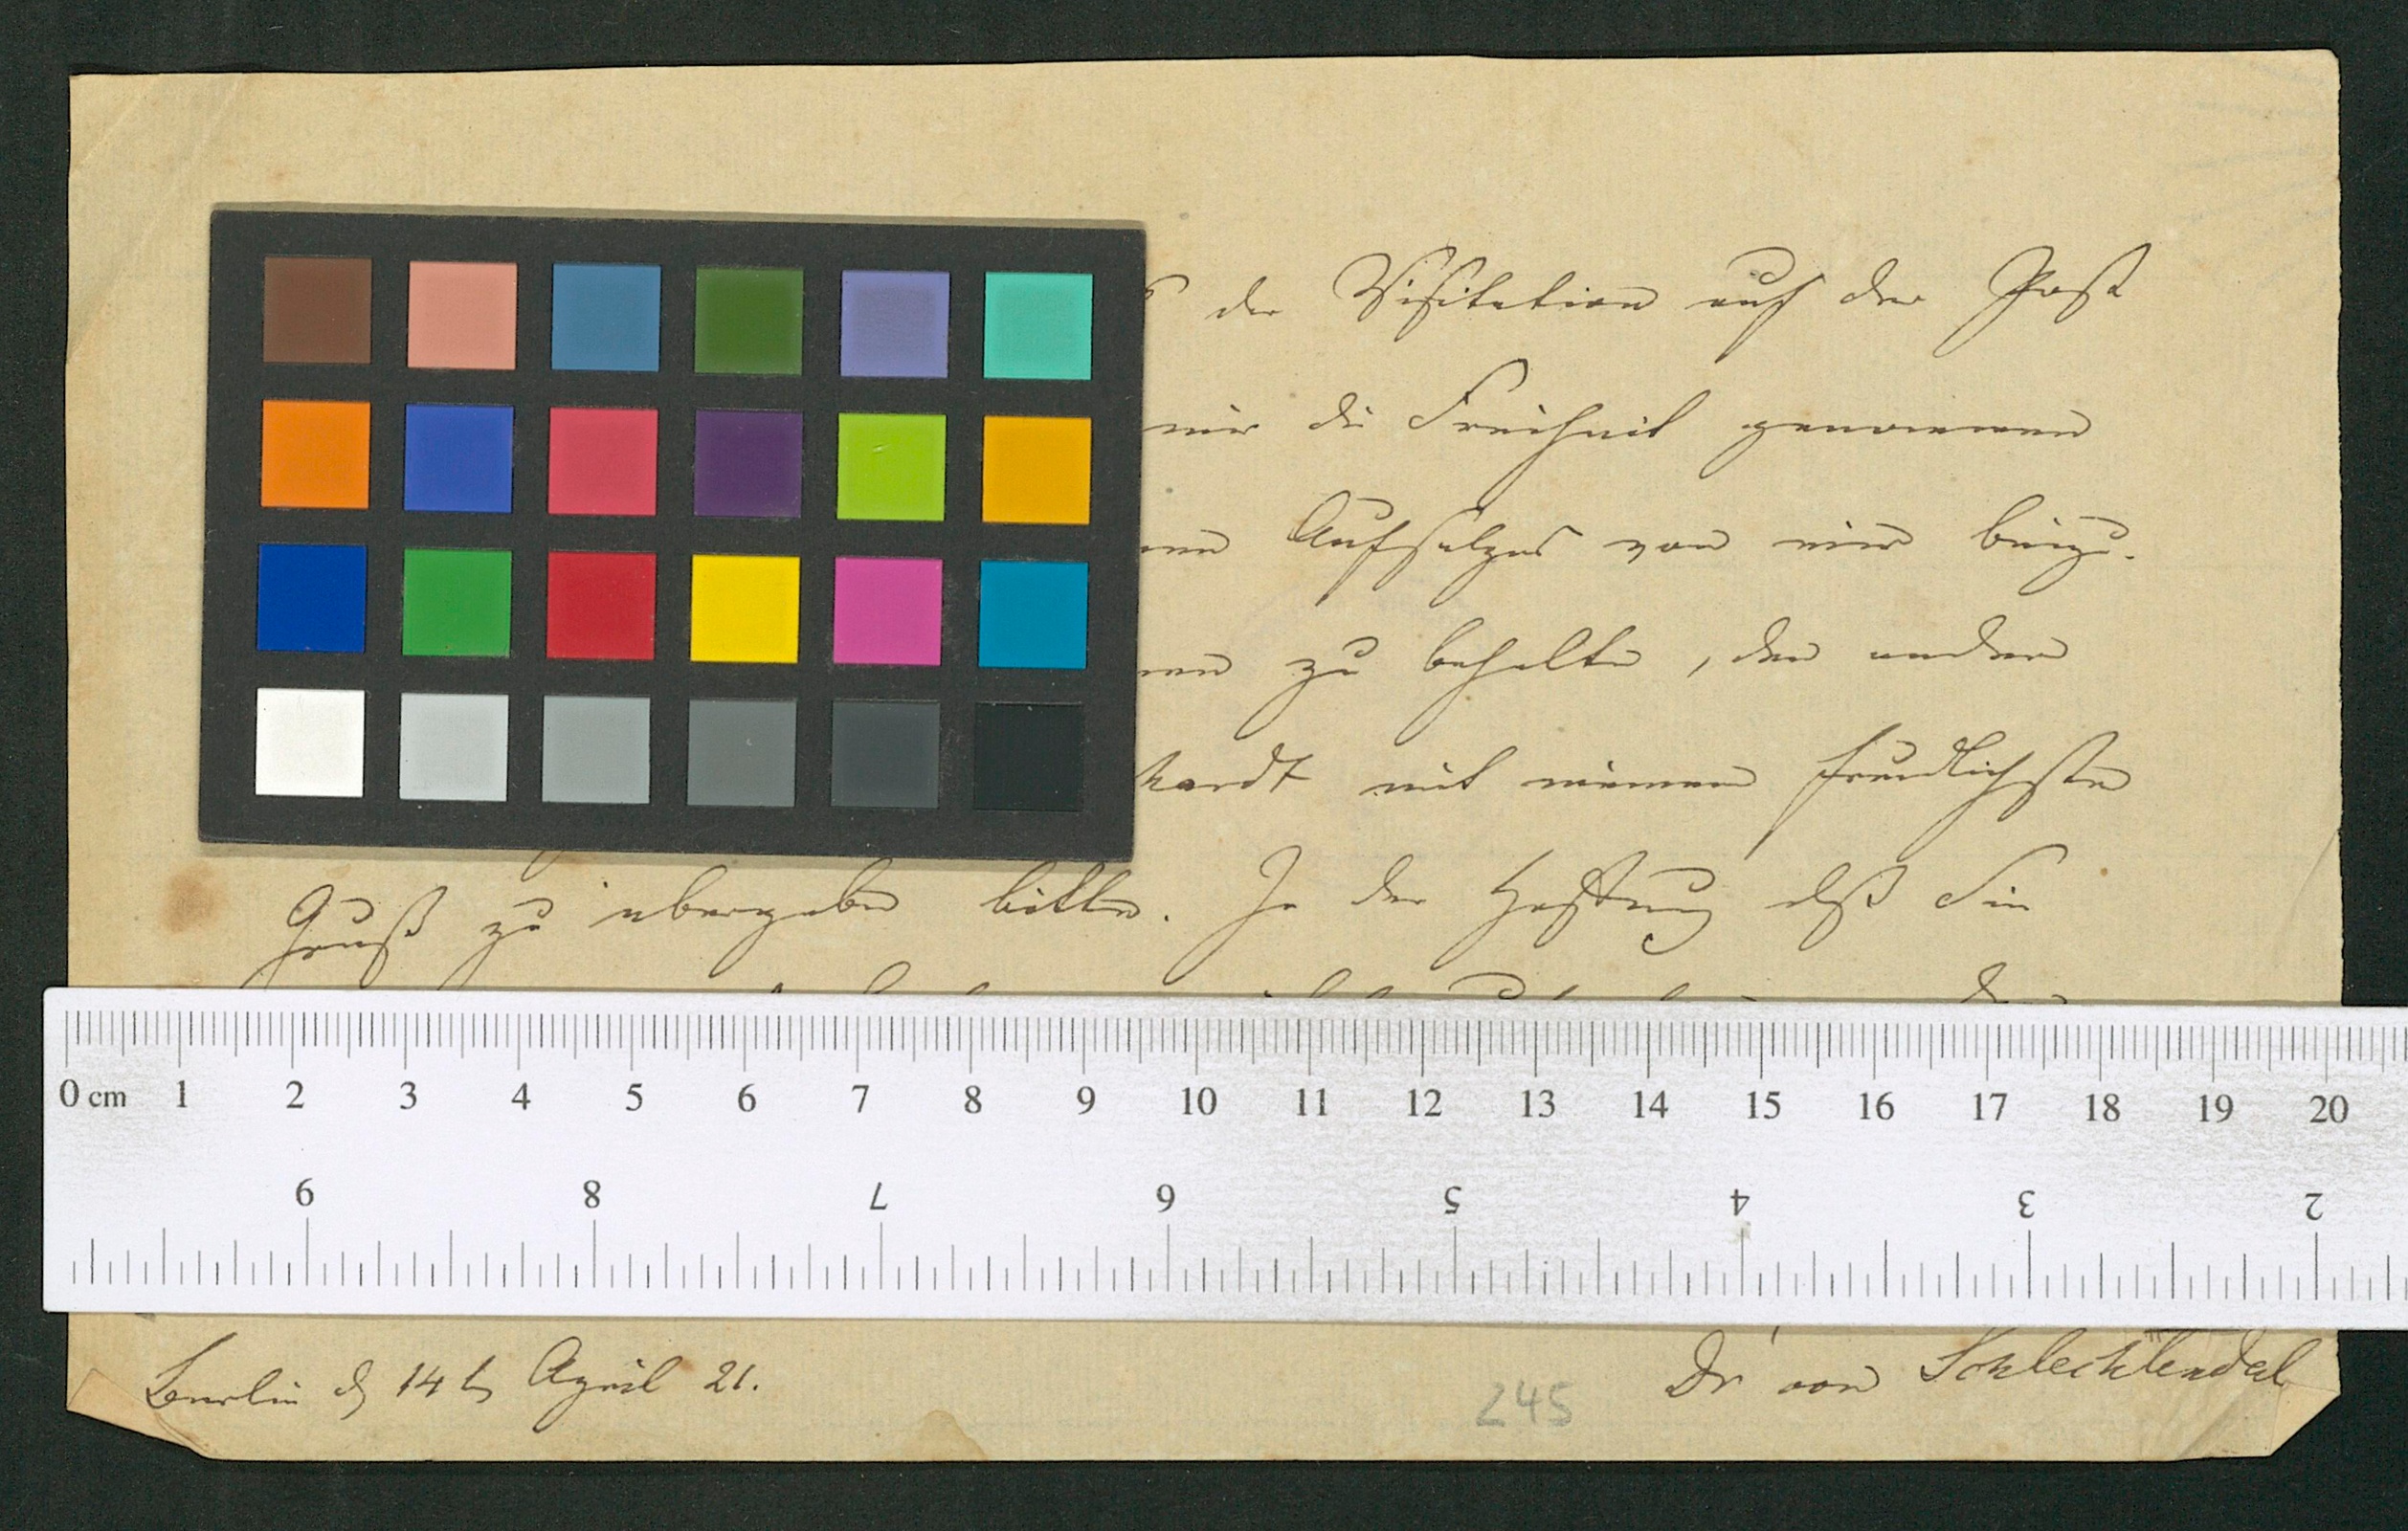 der Visitation auf der Post
mir die Freiheit genommen
Aufsatzes von mir beizu-
zu behalten, den andern
hardt mit meinem freundlichsten
Gruß zu übergeben bitte. In der Hoffnung daß Sie
0 cm 1 2 3 4 5 6 7 8 9 10 11 12 13 14 15 16 17 18 19 20
9 8 7 6 5 4 3 2
Berlin d 14 t April 21.
Dr von Schlechtendal
245